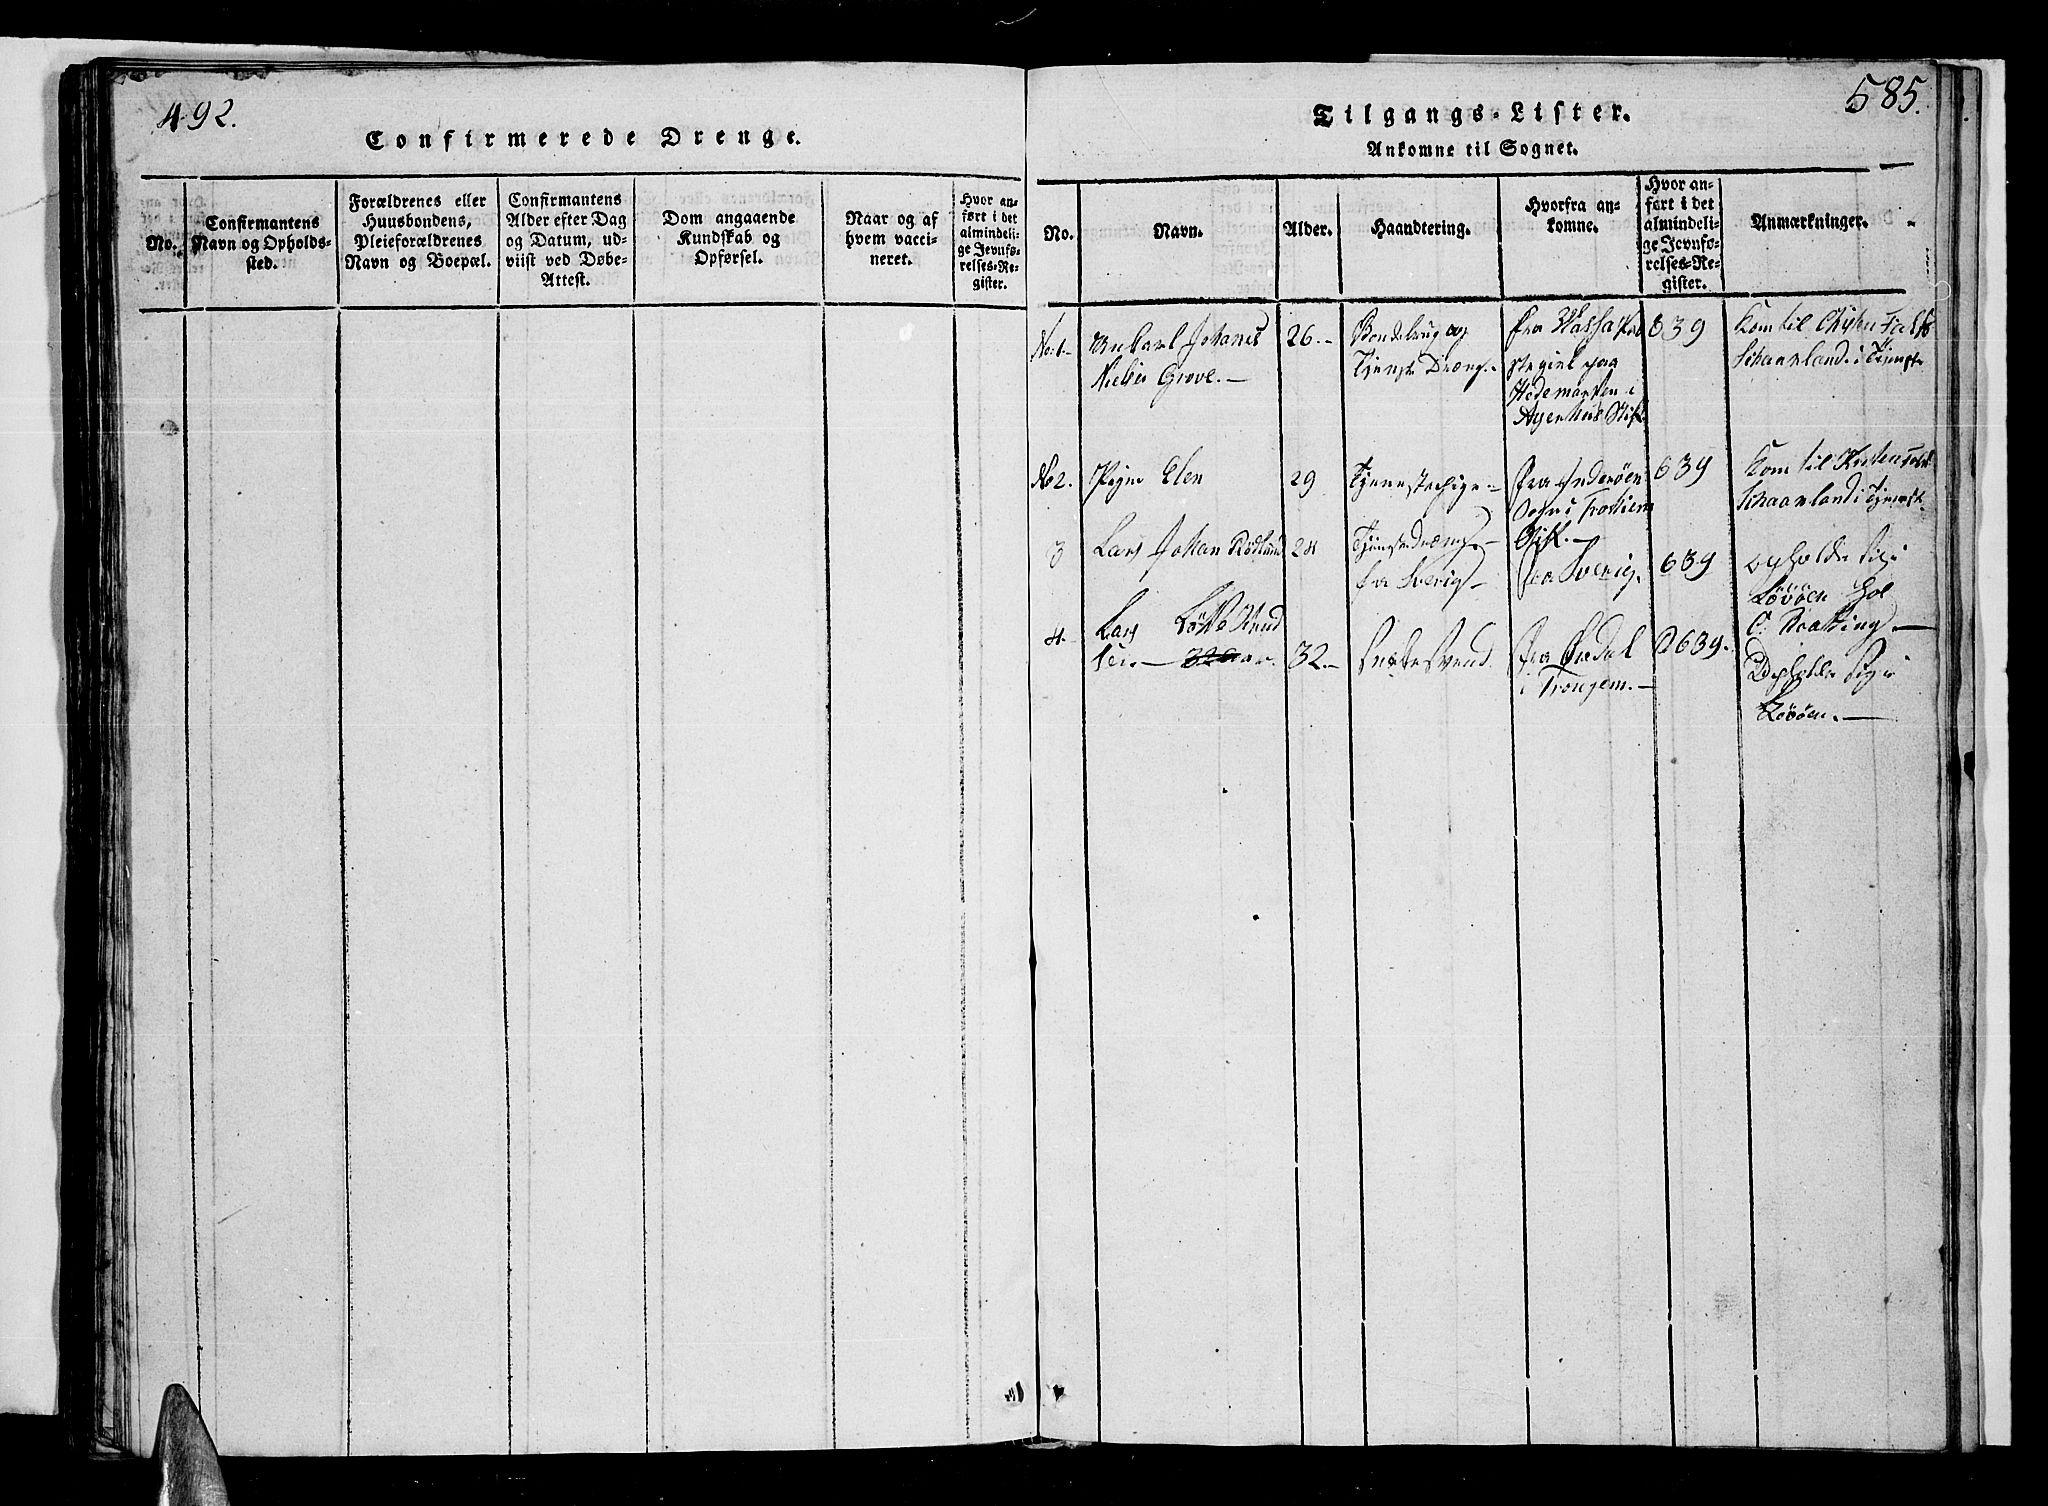 492.
Confirmerede Drenge.
No.
Confirmantens
Navn og Opholds-
sted.
Forældrenes eller
Huusbondens,
Pleieforældrenes
Navn og Boepæl.
Confirmantens
Alder efter Dag
og Datum, ud-
viist ved Døbe-
Attest.
Dom angaaende
Kundskab og
Opførsel.
Naar og af
hvem vacci-
neret.
Hvor an-
ført i det
almindeli-
ge Jevnfø-
relses-Re-
gister.
585.
Tilgangs-Lister.
Ankomne til Sognet.
No.
Navn.
Alder.
Haandtering.
Hvorfra an-
komne.
Hvor an-
ført i det
almindeli-
ge Jevnfø-
relses-Re-
gister.
Anmærkninger.
No 1.
Johanes
Nielsen Grove.
26.
Bondebrug og
Tjeneste Dreng.
fra
stegiel paa
Hedemarken i
Agerhus Stift
639
Kom til
Schaanland i Tjeneste
No 2.
Pige Elen
29
Tjenestepige
fra Inderøen
Sogn i
Stift.
639
Kom til
Schaanland i Tjeneste
3
Lars Johan
24
Tjenestedreng
fra Sverig
fra Sverig.
639
opholder sig i
Løvøen
4
Lars
sen.
32.
Snekersvend
fra
i Tronjem.
639.
Opholder sig i
Løvøen.